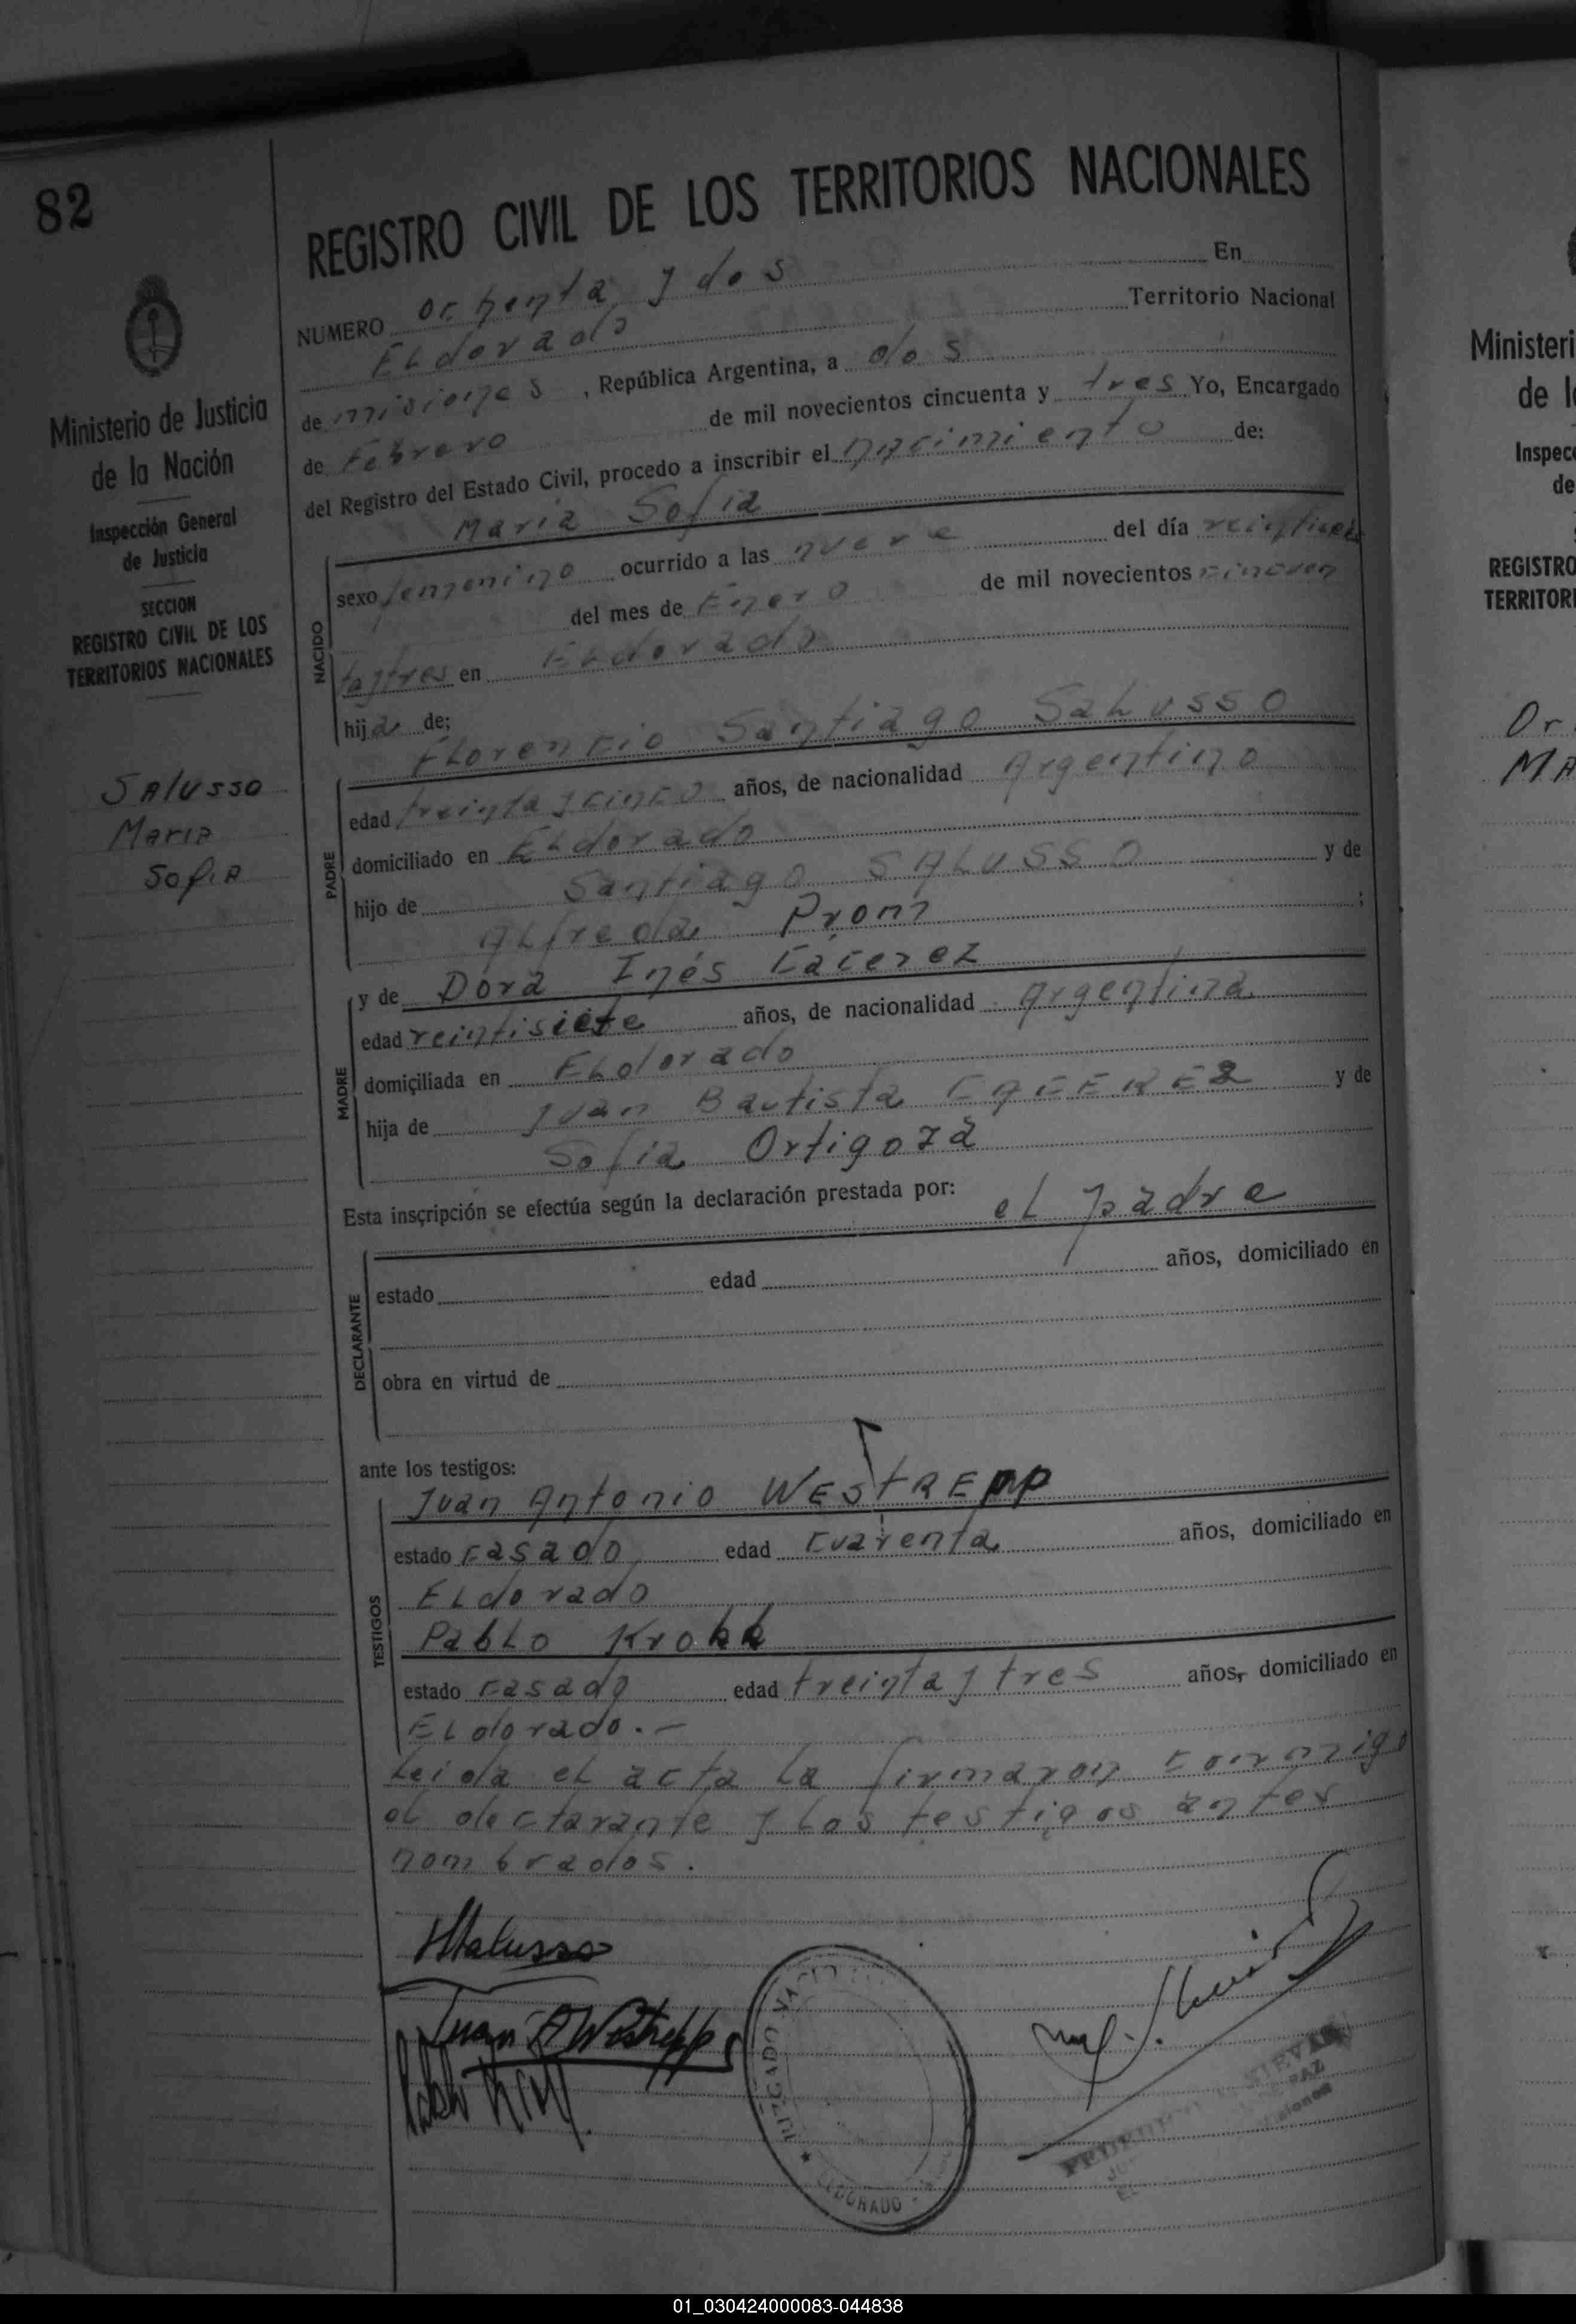 82
Ministerio de Justicia
de la Nación
Inspección General
de Justicia
SECCION
REGISTRO CIVIL DE LOS
TERRITORIOS NACIONALES
SAlusso
Maria
Sofia
REGISTRO CIVIL DE LOS TERRITORIOS NACIONALES
NUMERO ochenta y dos En
ELdorado Territorio Nacional
de misiones , República Argentina, a dos
de Febrero de mil novecientos cincuenta y tres Yo, Encargado
del Registro del Estado Civil, procedo a inscribir el nacimiento de:
Maria Sofia
NACIDO
sexo femenino ocurrido a las nueve del día
del mes de Enero de mil novecientos cincuen
taytres en ELdorado
hija de;
Florencio Santiago Salusso
PADRE
edad treinta y cinco años, de nacionalidad Argentino
domiciliado en ELdorado
hijo de Santiago SALUSSO y de
ALfreda Prom ;
MADRE
y de Dora Inés Cacerez
edad veintisiete años, de nacionalidad Argentina
domiciliada en ELdorado
hija de Juan Bautista CACEREZ y de
Sofia Ortigoza
Esta inscripción se efectúa según la declaración prestada por:
el padre
DECLARANTE
estado edad años, domiciliado en
obra en virtud de
ante los testigos:
TESTIGOS
Juan Antonio WEStREpp
estado casado edad cuarenta años, domiciliado en
ELdorado
PabLo Kroll
estado casado edad treinta y tres años, domiciliado en
ELdorado.-
Leida eL acta la firmaron conmigo
el declarante y Los testigos antes
nombrados.
Salusso
Juan A Westrepp
JUZGADO
ELDORADO
PAZ
Misiones
Ministeri
de l
Inspec
de
REGISTRO
TERRITOR
Or
MA
01_030424000083-044838